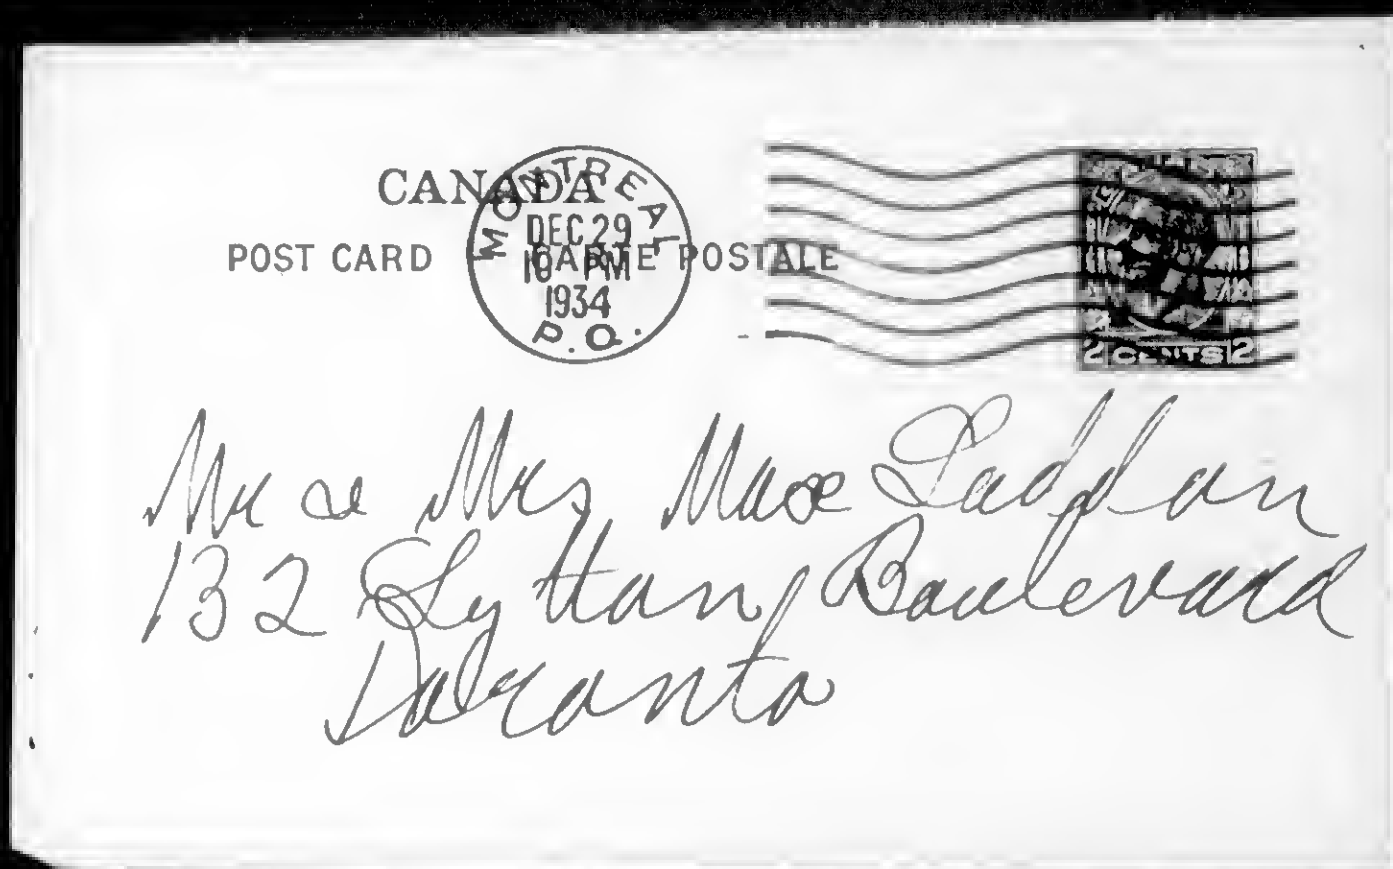 CANADA
POST CARD CARTE POSTALE
MONTREAL
DEC 29
10 PM
1934
P.Q.
2 CENTS 2
Mr & Mrs Max Laddon
132 Lytton Boulevard
Toronto